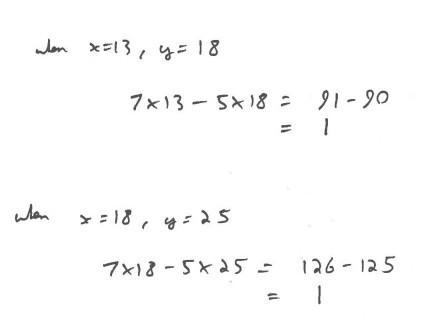 when x=13, y=18
7×13 - 5×18 = 91-90
= 1
when x=18, y=25
7×18 - 5×25 = 126-125
= 1